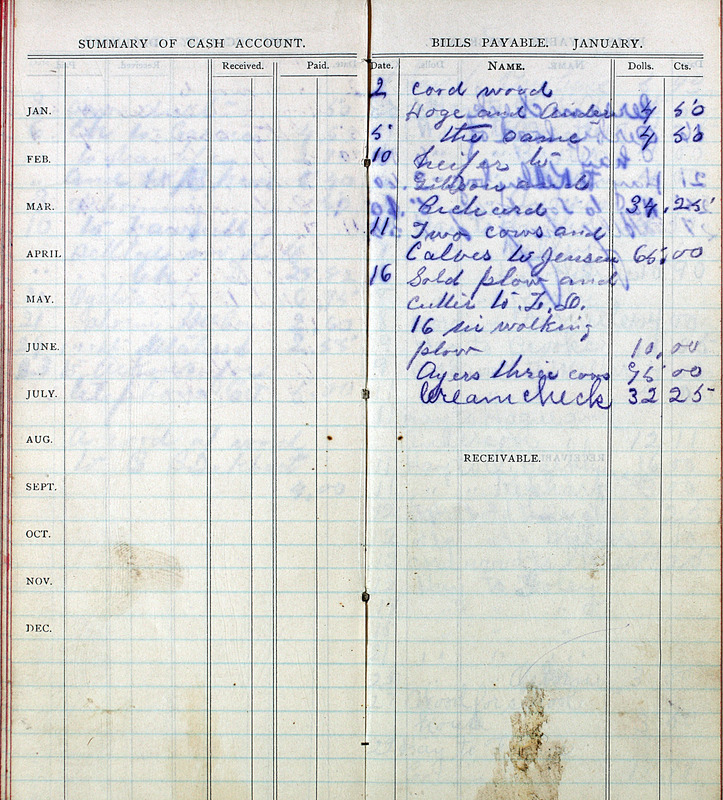 SUMMARY OF CASH ACCOUNT.
Received. Paid.
JAN.
FEB.
MAR.
APRIL
MAY.
JUNE.
JULY.
AUG.
SEPT.
OCT.
NOV.
DEC.
BILLS PAYABLE. JANUARY.
Date. NAME. Dolls. Cts.
2 cord wood
Hoge and 4 50
5 the same 4 50
10 heifer to
Gibson and
34.25
11. Two cows and
Calves to Jensen 65.00
16 Sold plow and
cutter to
16 in walking
plow 10.00
Ayers three cows 75 00
Cream check 32 25
RECEIVABLE.